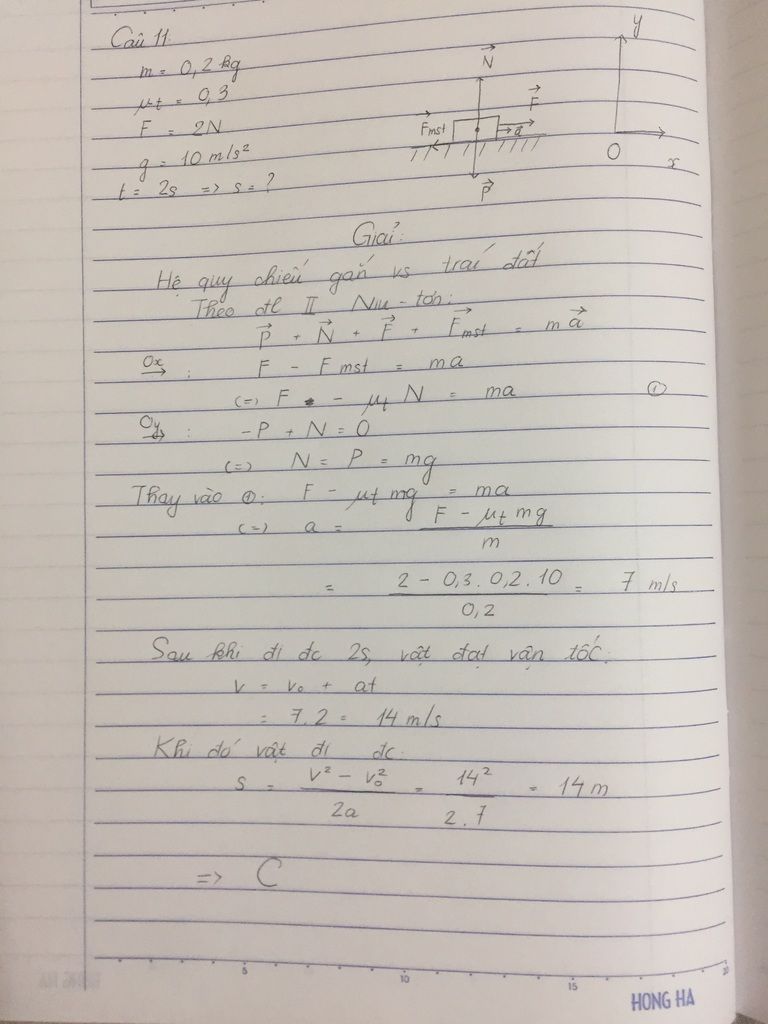 Câu 11:
m = 0,2 kg
μt = 0,3
F = 2N
g = 10 m/s²
t = 2s => s = ?
N
F
Fmst
a
P
y
O
x
Giải:
Hệ quy chiếu gắn vs trái đất
Theo đl II Niu-tơn:
P + N + F + Fmst = ma
Ox : F - Fmst = ma
(=) F - μt N = ma ①
Oy : -P + N = 0
(=) N = P = mg
Thay vào ①: F - μt mg = ma
(=) a = F - μt mg / m
= 2 - 0,3. 0,2. 10 / 0,2 = 7 m/s
Sau khi đi đc 2s, vật đạt vận tốc:
v = v₀ + at
= 7.2 = 14 m/s
Khi đó vật đi đc:
s = v² - v₀² / 2a = 14² / 2.7 = 14 m
=> C
5 10 15 20
HONG HA